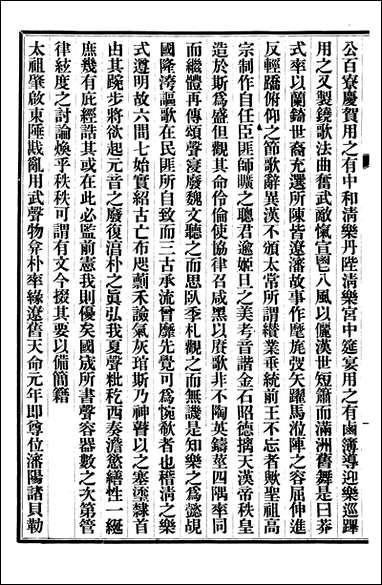 公百寮慶賀用之有中和清樂丹陛清樂宮中筵宴用之有鹵簿導迎樂巡蹕
用之又製鐃歌法曲奮武敵愾宣鬯八風以儷漢世短蕭而滿洲舊舞是曰莽
式率以蘭錡世裔充選所陳皆遼瀋故事作麾旄弢矢躍馬涖陣之容屈伸進
反輕蹻俯仰之節歌辭異漢不頒太常所謂纘業垂統前王不忘者歟聖祖高
宗制作自任臣匪師曠之聰君邈姬旦之美考音諧金石昭德摛天漢帝秩皇
造於斯爲盛但觀其命伶倫使協律召咸黑以賡歌非不陶英鑄莖四隅率同
而繼體再傳頌聲寖廢魏文聽之而思臥季札觀之而無譏是知樂之爲懿覘
國隆洿謳歌在民匪所自致而三古承流曾靡先覺可爲惋欷者也稽淸之樂
式遵明故六間七始實紹古亡布咫蓺禾譣氣灰琯斯乃神瞽以之塞濩隸首
由其踠步將欲起元音之廢復淯朴之眞弘我夏聲枇杚西奏澹慾繕性一綖
庶幾有庇經誥其或在此必監前憲我則優矣國宬所書聲容器數之次第管
律絃度之討論煥乎秩秩可謂有文今掇其要以備簡籍
太祖肇啟東陲戡亂用武聲物弇朴率緣遼舊天命元年即尊位瀋陽諸貝勒